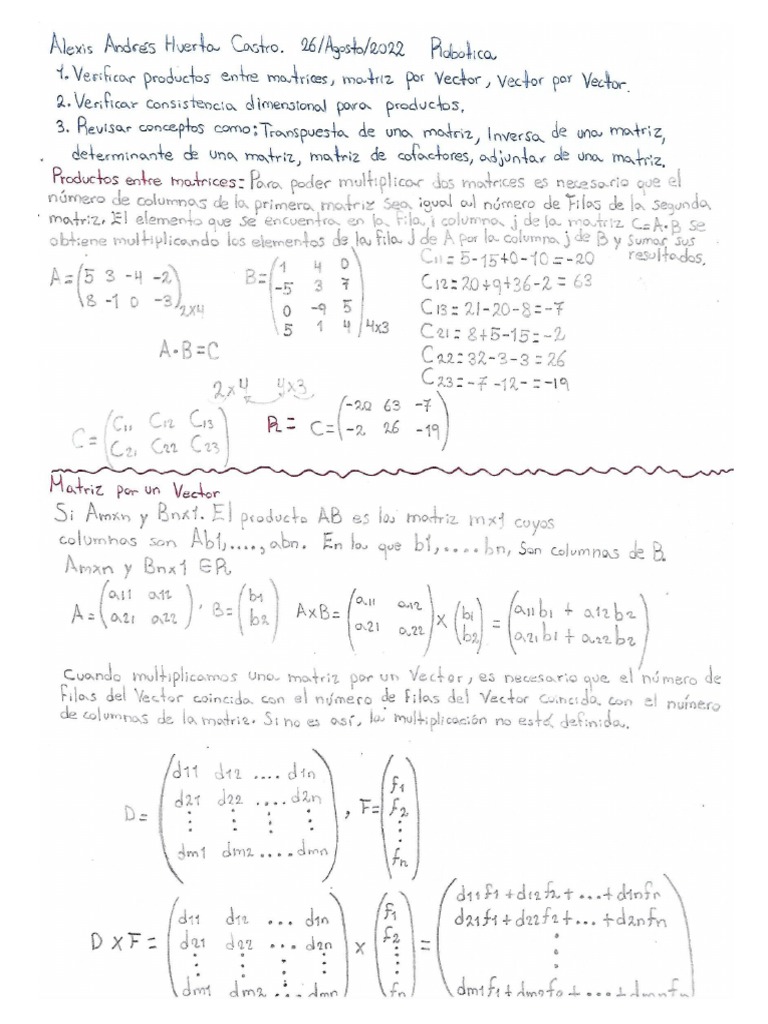 Alexis Andrés Huerta Castro. 26/Agosto/2022 Robotica
1. Verificar productos entre matrices, matriz por Vector, Vector por Vector.
2. Verificar consistencia dimensional para productos.
3. Revisar conceptos como: Transpuesta de una matriz, Inversa de una matriz,
determinante de una matriz, matriz de cofactores, adjuntar de una matriz.
Productos entre matrices: Para poder multiplicar dos matrices es necesario que el
número de columnas de la primera matriz sea igual al número de Filas de la segunda
matriz. El elemento que se encuentra en la fila, i columna j de la matriz C=A·B se
obtiene multiplicando los elementos de la fila J de A por la columna j de B y sumar sus
resultados.
A=(5 3 -4 -2
8 -1 0 -3)2x4
B=(1 4 0
-5 3 7
0 -9 5
5 1 4)4x3
C11=5-15+0-10=-20
C12=20+9+36-2=63
C13=21-20-8=-7
C21=8+5-15=-2
C22=32-3-3=26
C23=-7-12-=-19
A·B=C
2x4 4x3
C=(C11 C12 C13
C21 C22 C23)
R= C=(-20 63 -7
-2 26 -19)
Matriz por un Vector
Si Amxn y Bnx1. El producto AB es la matriz mx1 cuyos
columnas son Ab1,....,abn. En la que b1,....bn, Son columnas de B.
Amxn y Bnx1 ∈R
A=(a11 a12
a21 a22), B=(b1
b2) AxB=(a11 a12
a21 a22)x(b1
b2)=(a11b1 + a12b2
a21b1 + a22b2)
Cuando multiplicamos una matriz por un Vector, es necesario que el número de
filas del Vector coincida con el número de filas del Vector coincida con el número
de columnas de la matriz. Si no es así, la multiplicación no está definida.
D=(d11 d12 .... d1n
d21 d22 .... d2n
⋮ ⋮ ⋮ ⋮
dm1 dm2 .... dmn), F=(f1
f2
⋮
fn)
D x F=(d11 d12 ... d1n
d21 d22 ... d2n
⋮ ⋮ ⋮ ⋮
dm1 dm2 ... dmn) x (f1
f2
⋮
fn)=(d11f1+d12f2+...+d1nfn
d21f1+d22f2+...+d2nfn
⋮
dm1f1+dm2f2+...+dmnfn)